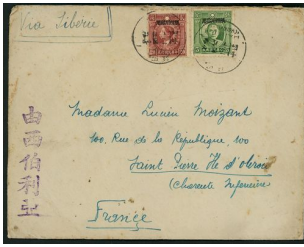 Via Siberie
Madame Lucien Moizant
100, Rue de la Republique, 100
Saint Pierre Ile d'oleron
(Charente Inferieure)
France
由西伯利亞